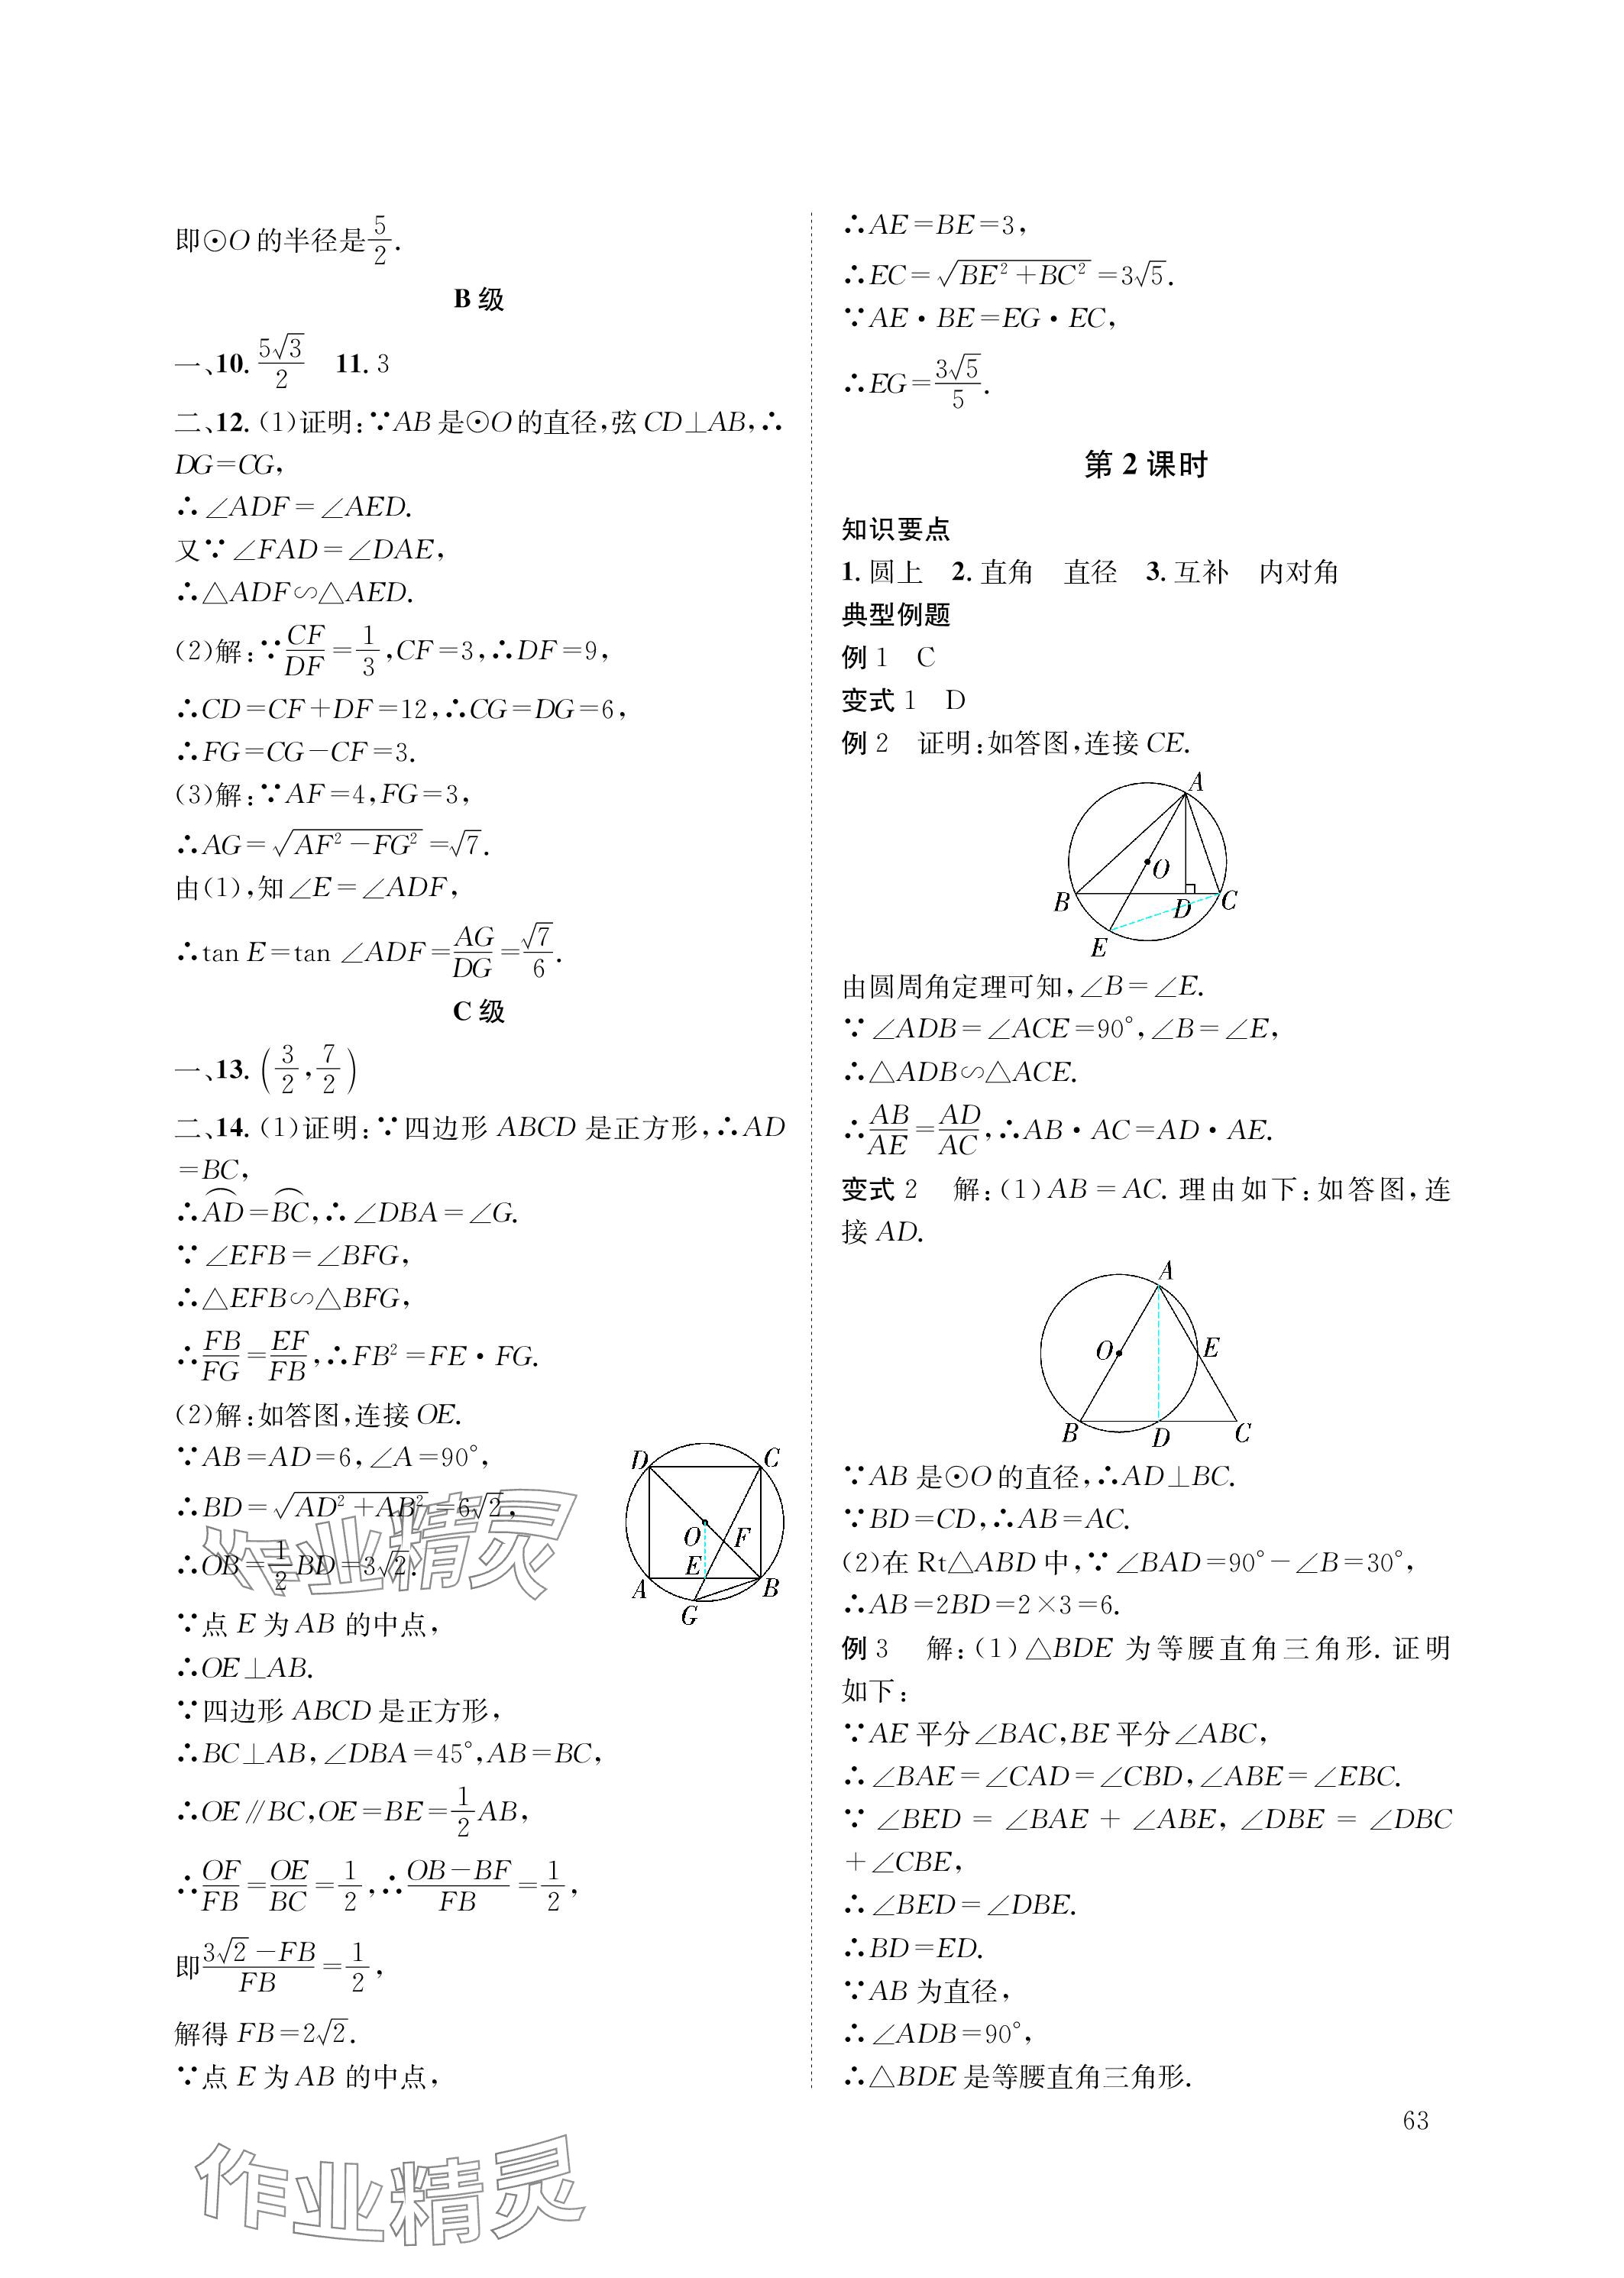 即⊙O的半径是5/2.
B级
一、10. 5√3/2 11. 3
二、12. (1)证明:∵AB是⊙O的直径,弦CD⊥AB,∴
DG=CG,
∴∠ADF=∠AED.
又∵∠FAD=∠DAE,
∴△ADF∽△AED.
(2)解:∵CF/DF=1/3,CF=3,∴DF=9,
∴CD=CF+DF=12,∴CG=DG=6,
∴FG=CG-CF=3.
(3)解:∵AF=4,FG=3,
∴AG=√(AF²-FG²)=√7.
由(1),知∠E=∠ADF,
∴tan E=tan ∠ADF=AG/DG=√7/6.
C级
一、13. (3/2,7/2)
二、14. (1)证明:∵四边形ABCD是正方形,∴AD
=BC,
∴⌒AD=⌒BC,∴∠DBA=∠G.
∵∠EFB=∠BFG,
∴△EFB∽△BFG,
∴FB/FG=EF/FB,∴FB²=FE·FG.
(2)解:如答图,连接OE.
∵AB=AD=6,∠A=90°,
∴BD=√(AD²+AB²)=6√2,
∴OB=1/2BD=3√2.
∵点E为AB的中点,
∴OE⊥AB.
∵四边形ABCD是正方形,
∴BC⊥AB,∠DBA=45°,AB=BC,
∴OE∥BC,OE=BE=1/2AB,
∴OF/FB=OE/BC=1/2,∴(OB-BF)/FB=1/2,
即(3√2-FB)/FB=1/2,
解得FB=2√2.
∵点E为AB的中点,
D
C
O
F
E
A
B
G
∴AE=BE=3,
∴EC=√(BE²+BC²)=3√5.
∵AE·BE=EG·EC,
∴EG=3√5/5.
第2课时
知识要点
1. 圆上 2. 直角 直径 3. 互补 内对角
典型例题
例1 C
变式1 D
例2 证明:如答图,连接CE.
A
O
B
D
C
E
由圆周角定理可知,∠B=∠E.
∵∠ADB=∠ACE=90°,∠B=∠E,
∴△ADB∽△ACE.
∴AB/AE=AD/AC,∴AB·AC=AD·AE.
变式2 解:(1)AB=AC. 理由如下:如答图,连
接AD.
A
O
E
B
D
C
∵AB是⊙O的直径,∴AD⊥BC.
∵BD=CD,∴AB=AC.
(2)在Rt△ABD中,∵∠BAD=90°-∠B=30°,
∴AB=2BD=2×3=6.
例3 解:(1)△BDE为等腰直角三角形. 证明
如下:
∵AE平分∠BAC,BE平分∠ABC,
∴∠BAE=∠CAD=∠CBD,∠ABE=∠EBC.
∵∠BED=∠BAE+∠ABE,∠DBE=∠DBC
+∠CBE,
∴∠BED=∠DBE.
∴BD=ED.
∵AB为直径,
∴∠ADB=90°,
∴△BDE是等腰直角三角形.
63
作业精灵
作业精灵